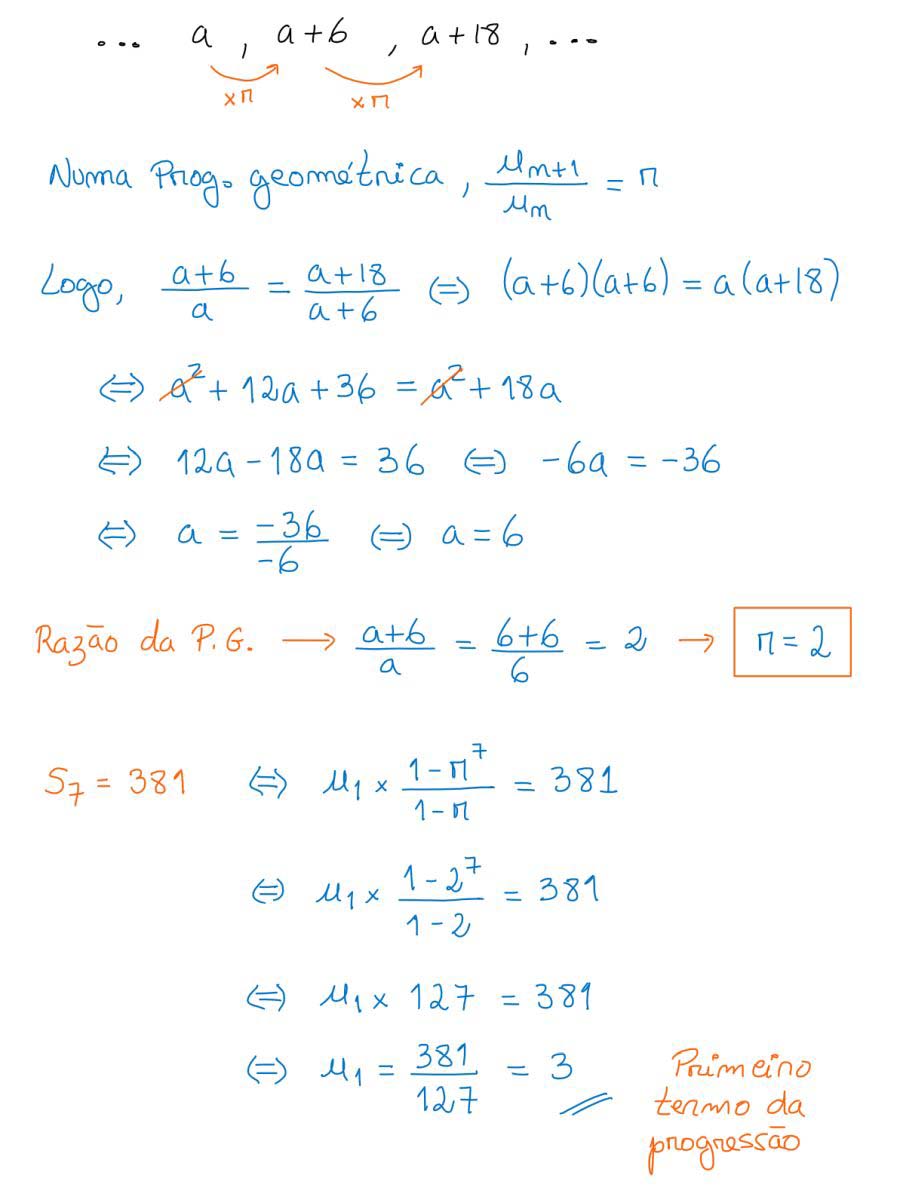 ... a , a+6 , a+18 , ...
×r ×r
Numa Prog. geométrica, u_{n+1}/u_n = r
Logo, (a+6)/a = (a+18)/(a+6) ⇔ (a+6)(a+6) = a(a+18)
⇔ a² + 12a + 36 = a² + 18a
⇔ 12a - 18a = 36 ⇔ -6a = -36
⇔ a = -36/-6 ⇔ a = 6
Razão da P.G. → (a+6)/a = (6+6)/6 = 2 → r = 2
S₇ = 381 ⇔ u₁ × (1-r⁷)/(1-r) = 381
⇔ u₁ × (1-2⁷)/(1-2) = 381
⇔ u₁ × 127 = 381
⇔ u₁ = 381/127 = 3
Primeiro
termo da
progressão